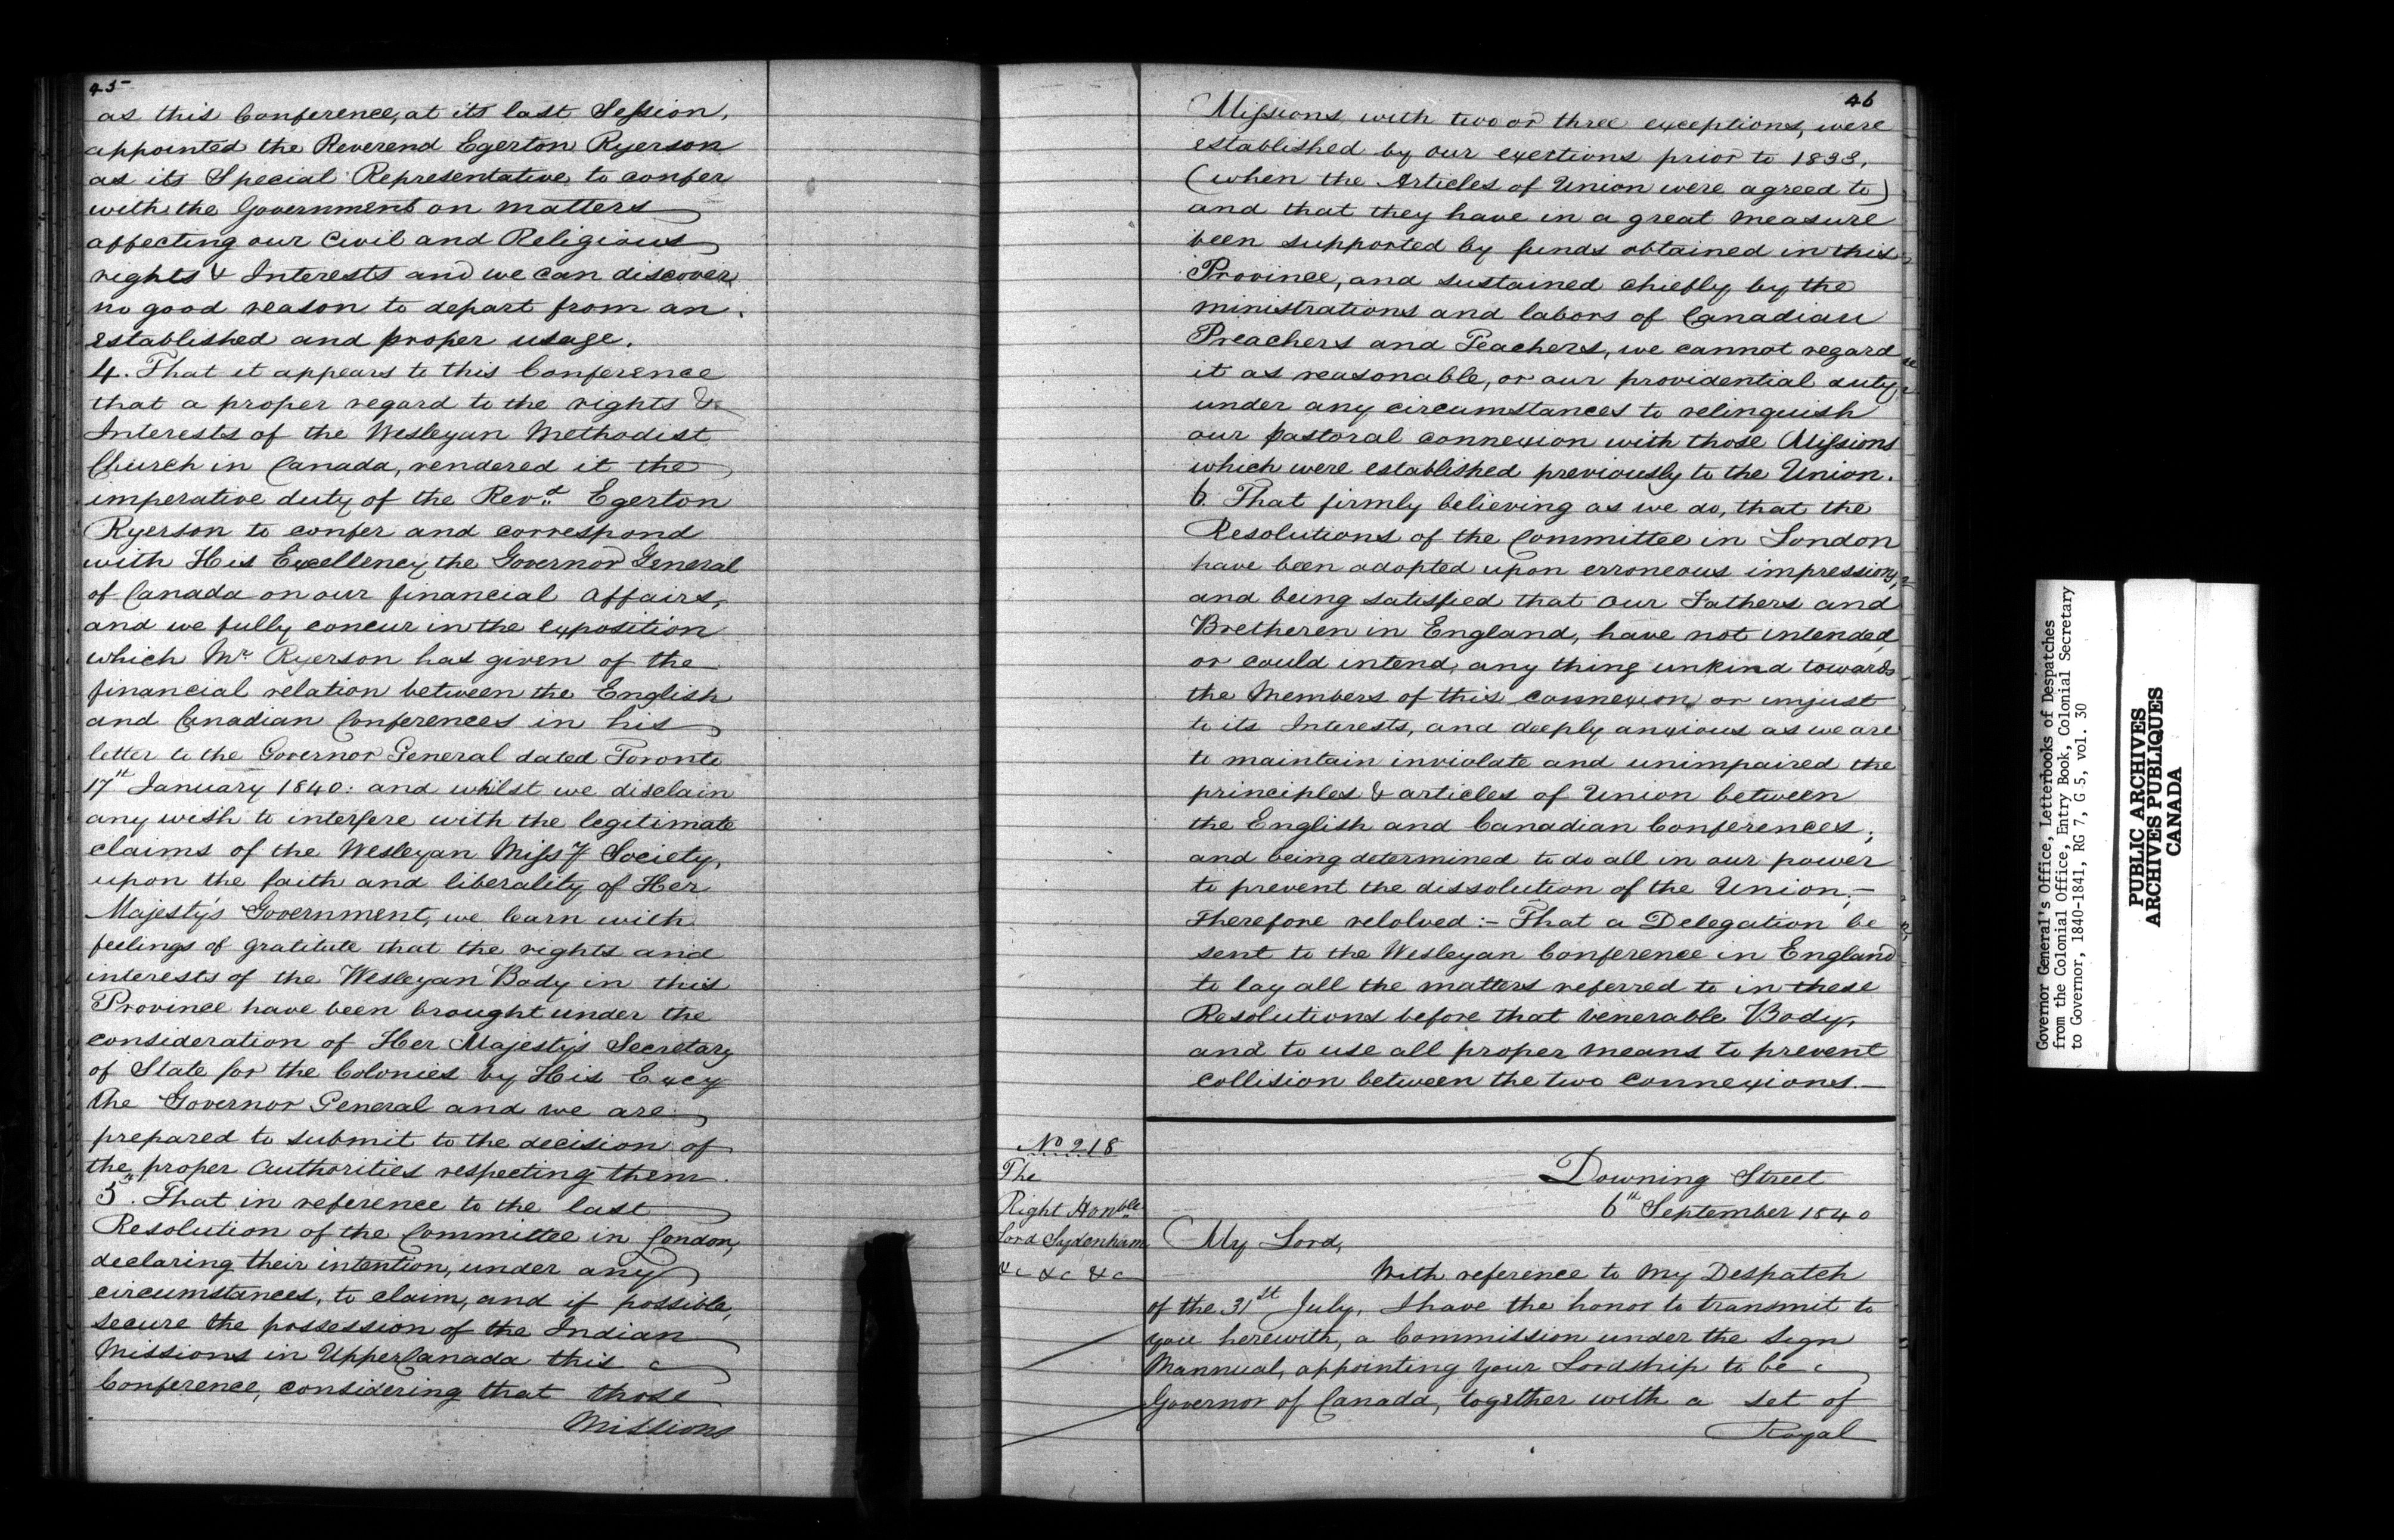 45
as this Conference, at its last Session,
appointed the Reverend Egerton Ryerson
as its Special Representative to confer
with the Government on matters
affecting our Civil and Religious
rights & Interests and we can discover
no good reason to depart from an
established and proper usage.
4. That it appears to this Conference
that a proper regard to the rights &
Interests of the Wesleyan Methodist
Church in Canada, rendered it the
imperative duty of the Revd. Egerton
Ryerson to confer and correspond
with His Excellency the Governor General
of Canada on our financial affairs,
and we fully concur in the exposition
which Mr Ryerson has given of the
financial relation between the English
and Canadian Conferences in his
letter to the Governor General dated Toronto
17th January 1840: and whilst we disclain
any wish to interfere with the legitimate
claims of the Wesleyan Missy Society,
upon the faith and liberality of Her
Majesty's Government, we learn with
feelings of gratitute that the rights and
interests of the Wesleyan Body in this
Province have been brought under the
consideration of Her Majesty's Secretary
of State for the Colonies by His Excy
the Governor General and we are
prepared to submit to the decision of
the proper Authorities respecting them.
5. That in reference to the last
Resolution of the Committee in London,
declaring their intention, under any
circumstances, to claim, and if possible,
secure the possession of the Indian
Missions in Upper Canada this
Conference, considering that those
Missions
46
Missions, with two or three exceptions, were
established by our exertions prior to 1833,
(when the Articles of Union were agreed to)
and that they have in a great measure
been supported by funds obtained in this
Province, and sustained chiefly by the
ministrations and labors of Canadian
Preachers and Teachers, we cannot regard
it as reasonable, or our providential duty,
under any circumstances to relinquish
our pastoral connexion with those Missions
which were established previously to the Union.
6. That firmly believing as we do, that the
Resolutions of the Committee in London
have been adopted upon erroneous impressions,
and being satisfied that our Fathers and
Bretheren in England, have not intended,
or could intend, any thing unkind towards
the Members of this connexion, or unjust
to its Interests, and deeply anxious as we are
to maintain inviolate and unimpaired the
principles & articles of Union between
the English and Canadian Conferences;
and being determined to do all in our power
to prevent the dissolution of the Union;—
Therefore relolved:— That a Delegation be
sent to the Wesleyan Conference in England
to lay all the matters referred to in these
Resolutions before that venerable Body,
and to use all proper means to prevent
collision between the two connexions.—
No 218
The
Right Honble
Lord Sydenham
&c &c &c
Downing Street
6th September 1840
My Lord,
With reference to my Despatch
of the 31st July, I have the honor to transmit to
you herewith, a Commission under the Sign
Mannual, appointing Your Lordship to be
Governor of Canada, together with a set of
Royal
Governor General's Office, Letterbooks of Despatches
from the Colonial Office, Entry Book, Colonial Secretary
to Governor, 1840-1841, RG 7, G 5, vol. 30
PUBLIC ARCHIVES
ARCHIVES PUBLIQUES
CANADA